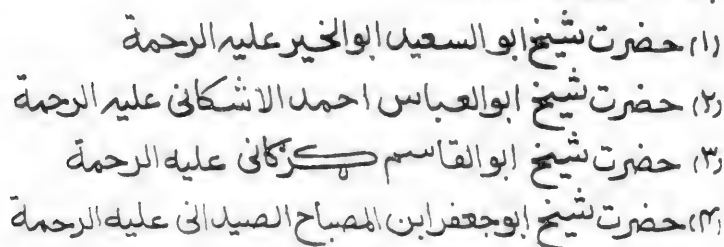 (۱) حضرت شیخ ابو السعید ابوالخیر علیہ الرحمۃ
(۲) حضرت شیخ ابوالعباس احمد الاشکانی علیہ الرحمۃ
(۳) حضرت شیخ ابوالقاسم گرگانی علیہ الرحمۃ
(۴) حضرت شیخ ابوجعفر ابن المصباح الصیدالانی علیہ الرحمۃ